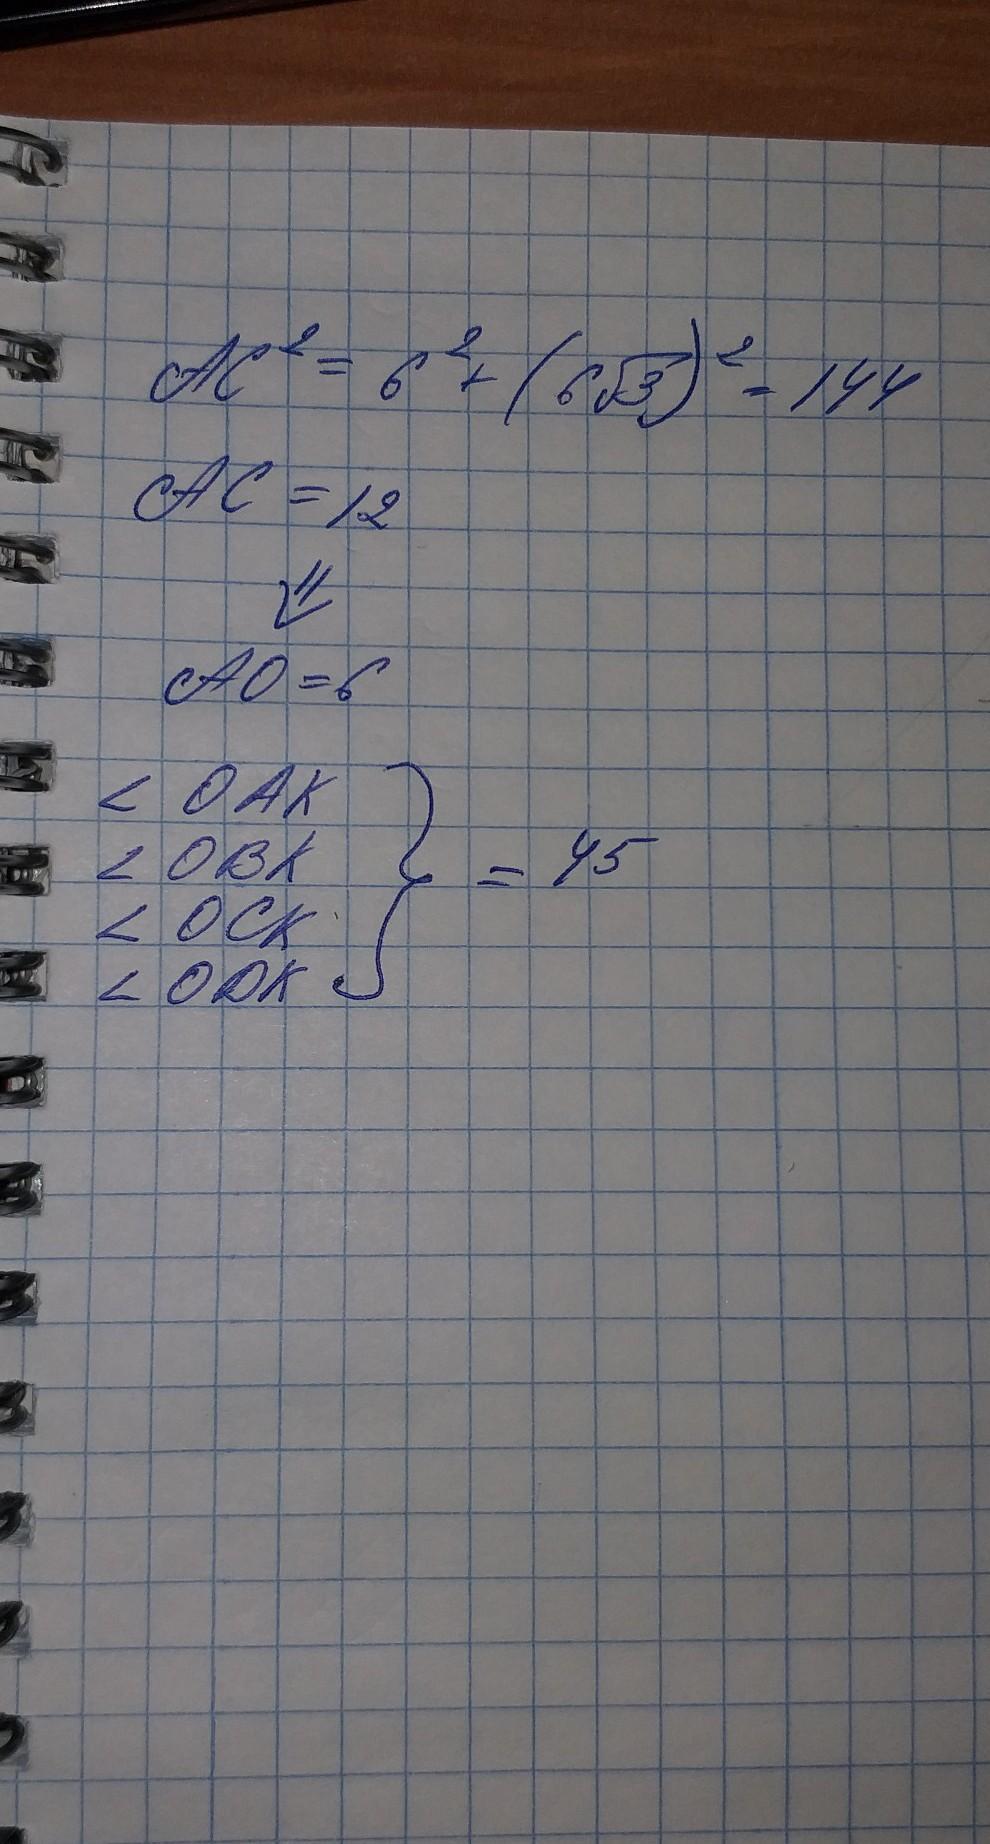 AC² = 6² + (6√3)² = 144
AC = 12
⇓
AO = 6
< OAK
< OBK
< OCK
< ODK } = 45